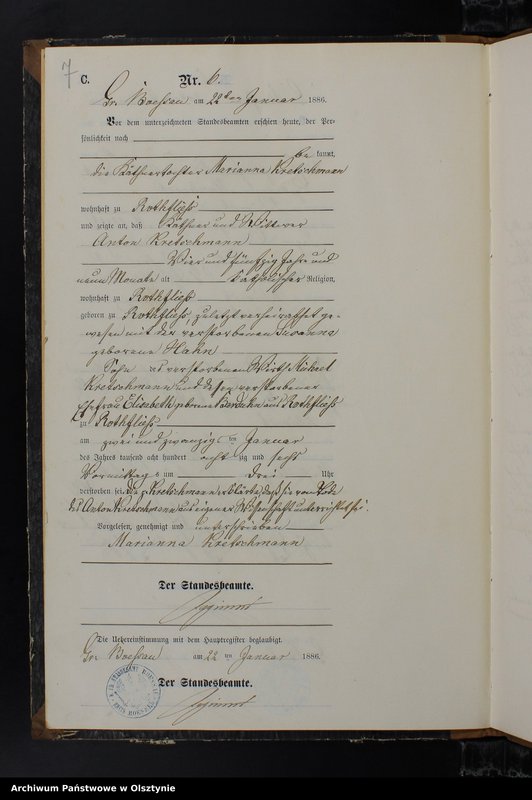 7
C.
Nr. 6.
Gr. Boessau am 22ten Januar 1886.
Vor dem unterzeichneten Standesbeamten erschien heute, der Per-
sönlichkeit nach
be kannt,
die Käthnertochter Marianna Kretschmann
wohnhaft zu Rothfließ
und zeigte an, daß Käthner und Wittwer
Anton Kretschmann
Vier und fünfzig Jahre und
neun Monate alt katholischer Religion,
wohnhaft zu Rothfließ
geboren zu Rothfließ, zuletzt verheirathet ge-
wesen mit der verstorbenen Susanna
geborene Hahn
Sohn des verstorbenen Wirths Michael
Kretschmann und dessen verstorbener
Ehefrau Elisabeth geborene aus Rothfließ
zu Rothfließ
am zwei und zwanzig ten Januar
des Jahres tausend acht hundert acht zig und sechs
Vormittags um drei Uhr
verstorben sei. Die Kretschmann erklärte, daß sie von Tode
des Anton Kretschmann aus eigener Wissenschaft unterrichtet sei.
Vorgelesen, genehmigt und unterschrieben
Marianna Kretschmann
Der Standesbeamte.
Die Uebereinstimmung mit dem Hauptregister beglaubigt.
Gr. Boessau am 22 ten Januar 1886.
Der Standesbeamte.
Archiwum Państwowe w Olsztynie